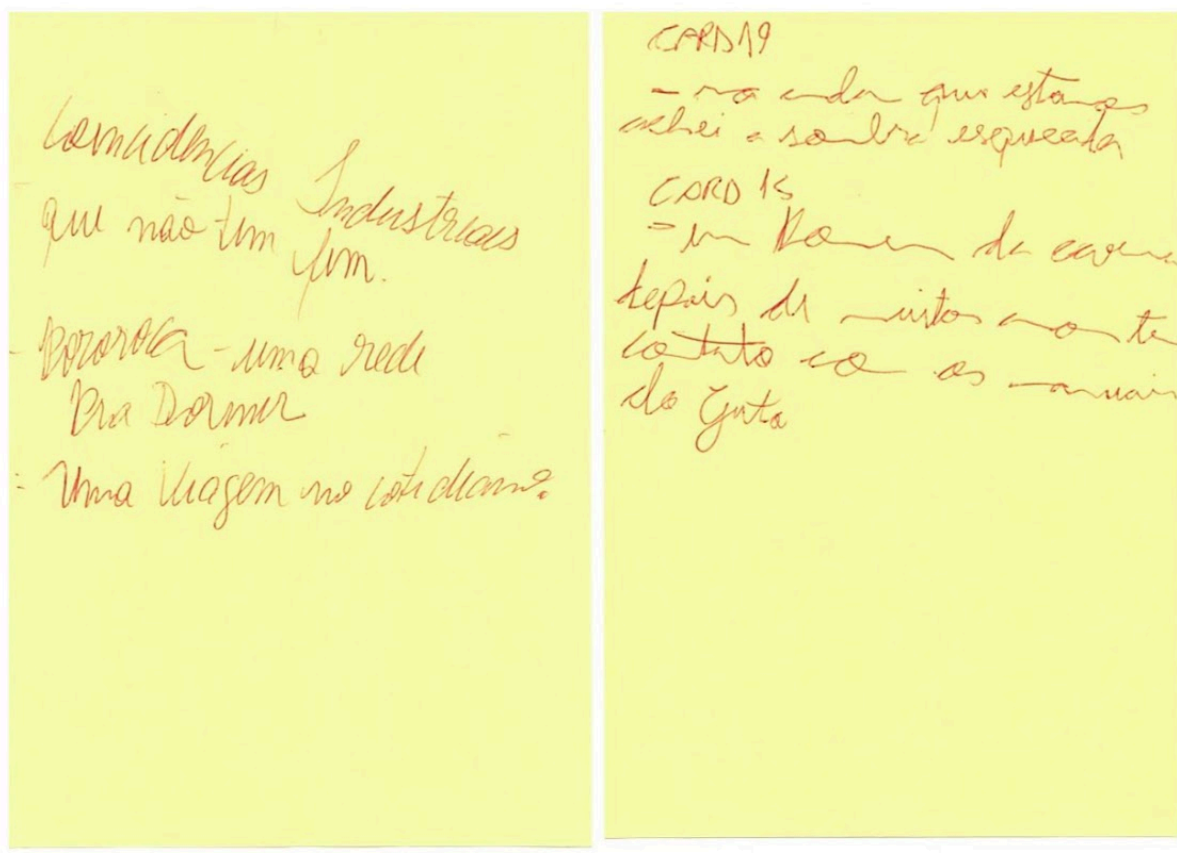 Coincidencias Industriais
que não tem fim.
- Pororoca - uma rede
Pra Dormir
- Uma Viagem no cotidiano.
CARD 19
- na onda que estamos
achei a sombra esquecida
CARD 15
- um Homem da caverna
depois de muitos anos
contato com os manuais
do Guto